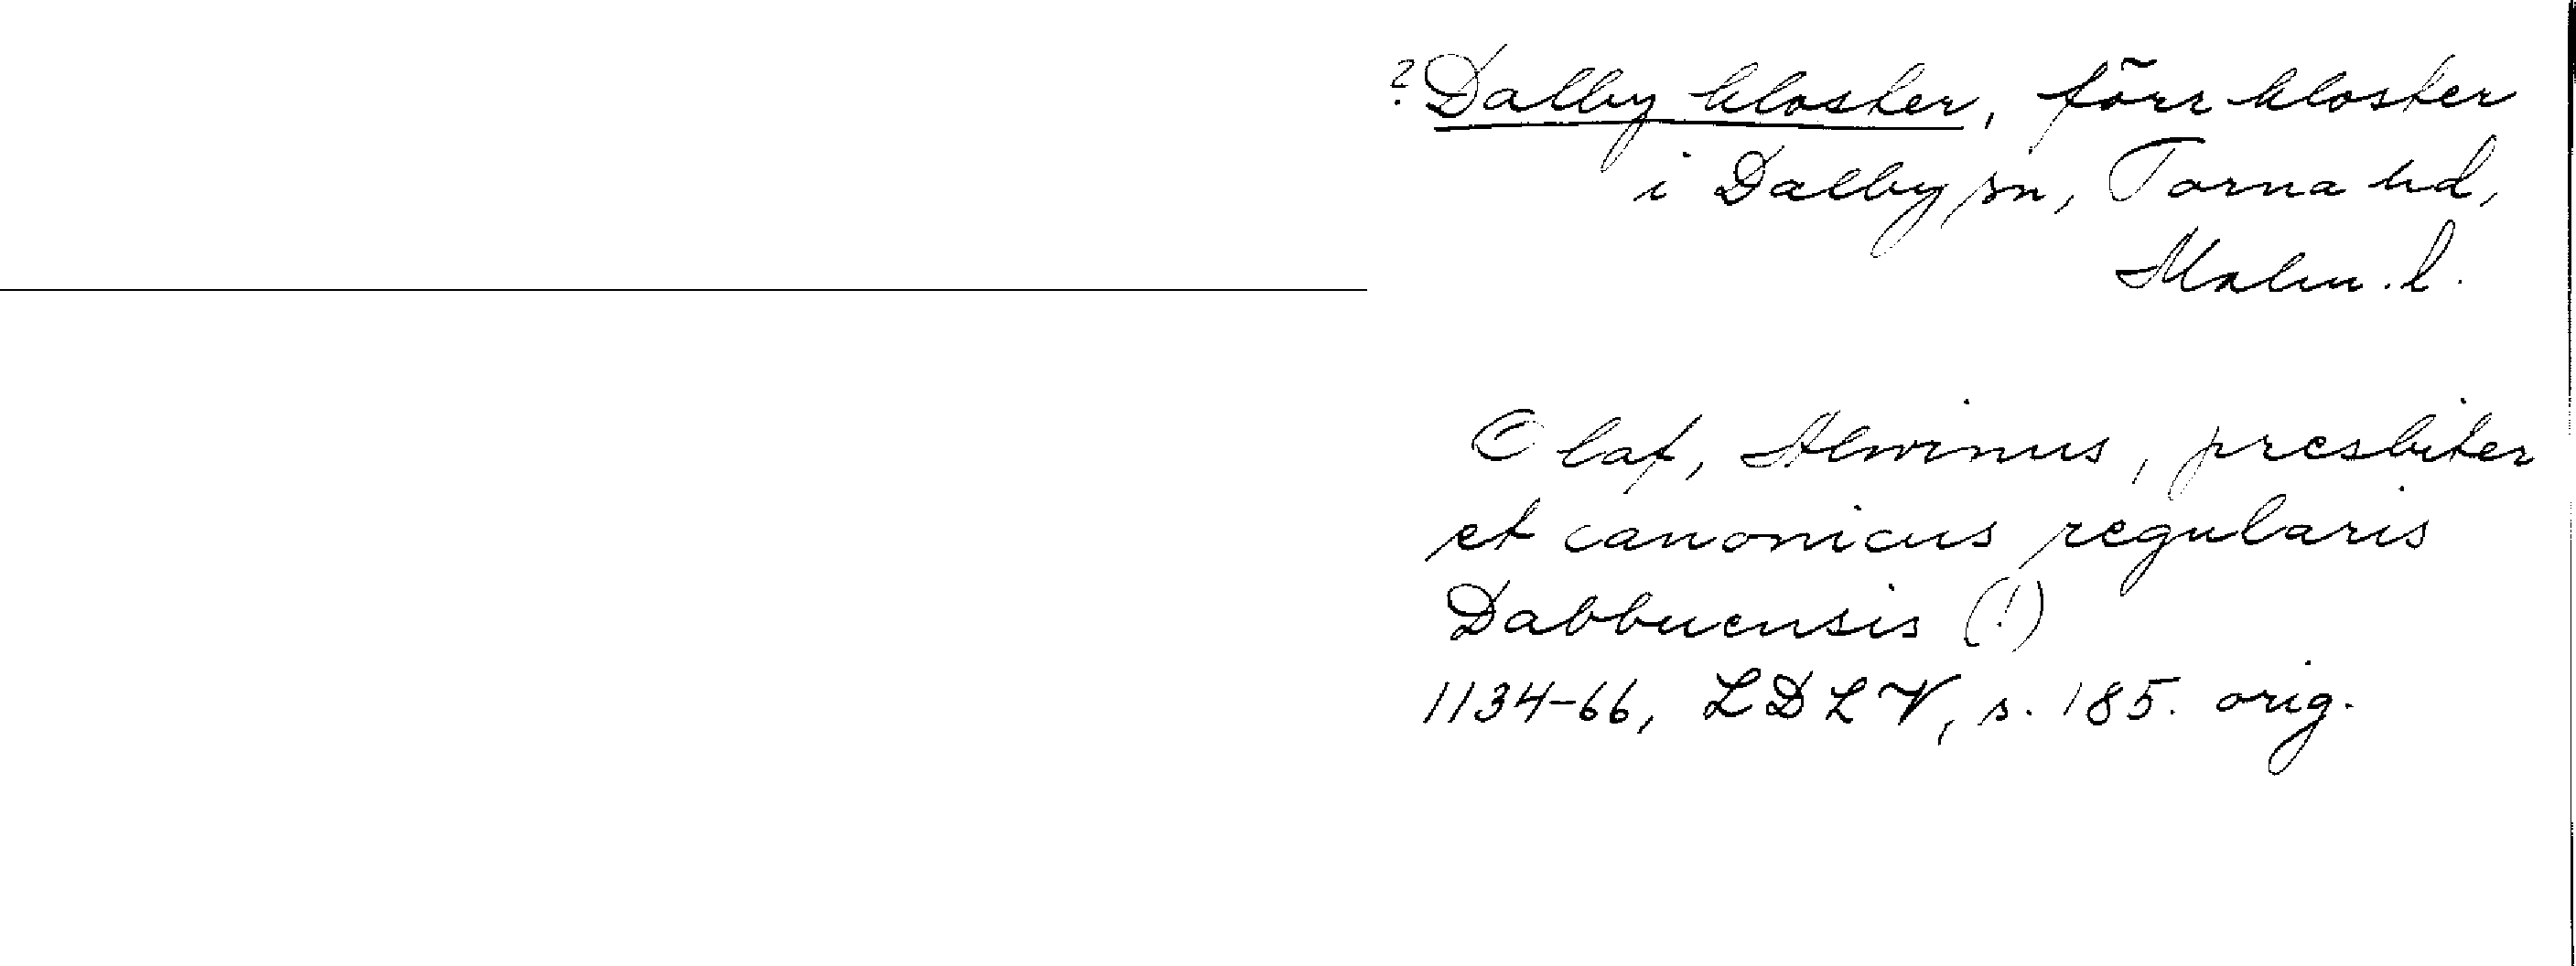 ? Dalby kloster, förr kloster
i Dalby sn, Torna hd,
Malm. l.
Olaf, Alwinus, presbiter
et canonicus regularis
Dabbuensis (!)
1134-66, LDLV, s. 185. orig.